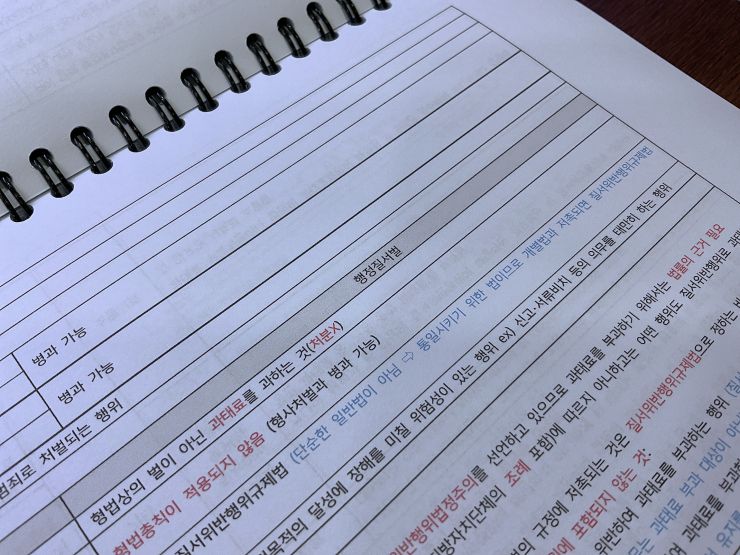 병과 가능
병과 가능
범죄로 처벌되는 행위
행정질서벌
형법상의 벌이 아닌 과태료를 과하는 것(처분X)
형법총칙이 적용되지 않음 (형사처벌과 병과 가능)
질서위반행위규제법 (단순한 일반법이 아님 ⇨ 통일시키기 위한 법이므로 개별법과 저촉되면 질서위반행위규제법
목적의 달성에 장해를 미칠 위험성이 있는 행위 ex) 신고·서류비치 등의 의무를 태만히 하는 행위
위반행위법정주의를 선언하고 있으므로 과태료를 부과하기 위해서는 법률의 근거 필요
방자치단체의 조례 포함)에 따르지 아니하고는 어떤 행위도 질서위반행위로 과태
의 규정에 저촉되는 것은 질서위반행위규제법으로 정하는 바
에 포함되지 않는 것:
반하여 과태료를 부과하는 행위
는 과태료 부과 대상이 아님
과태료를 부과하